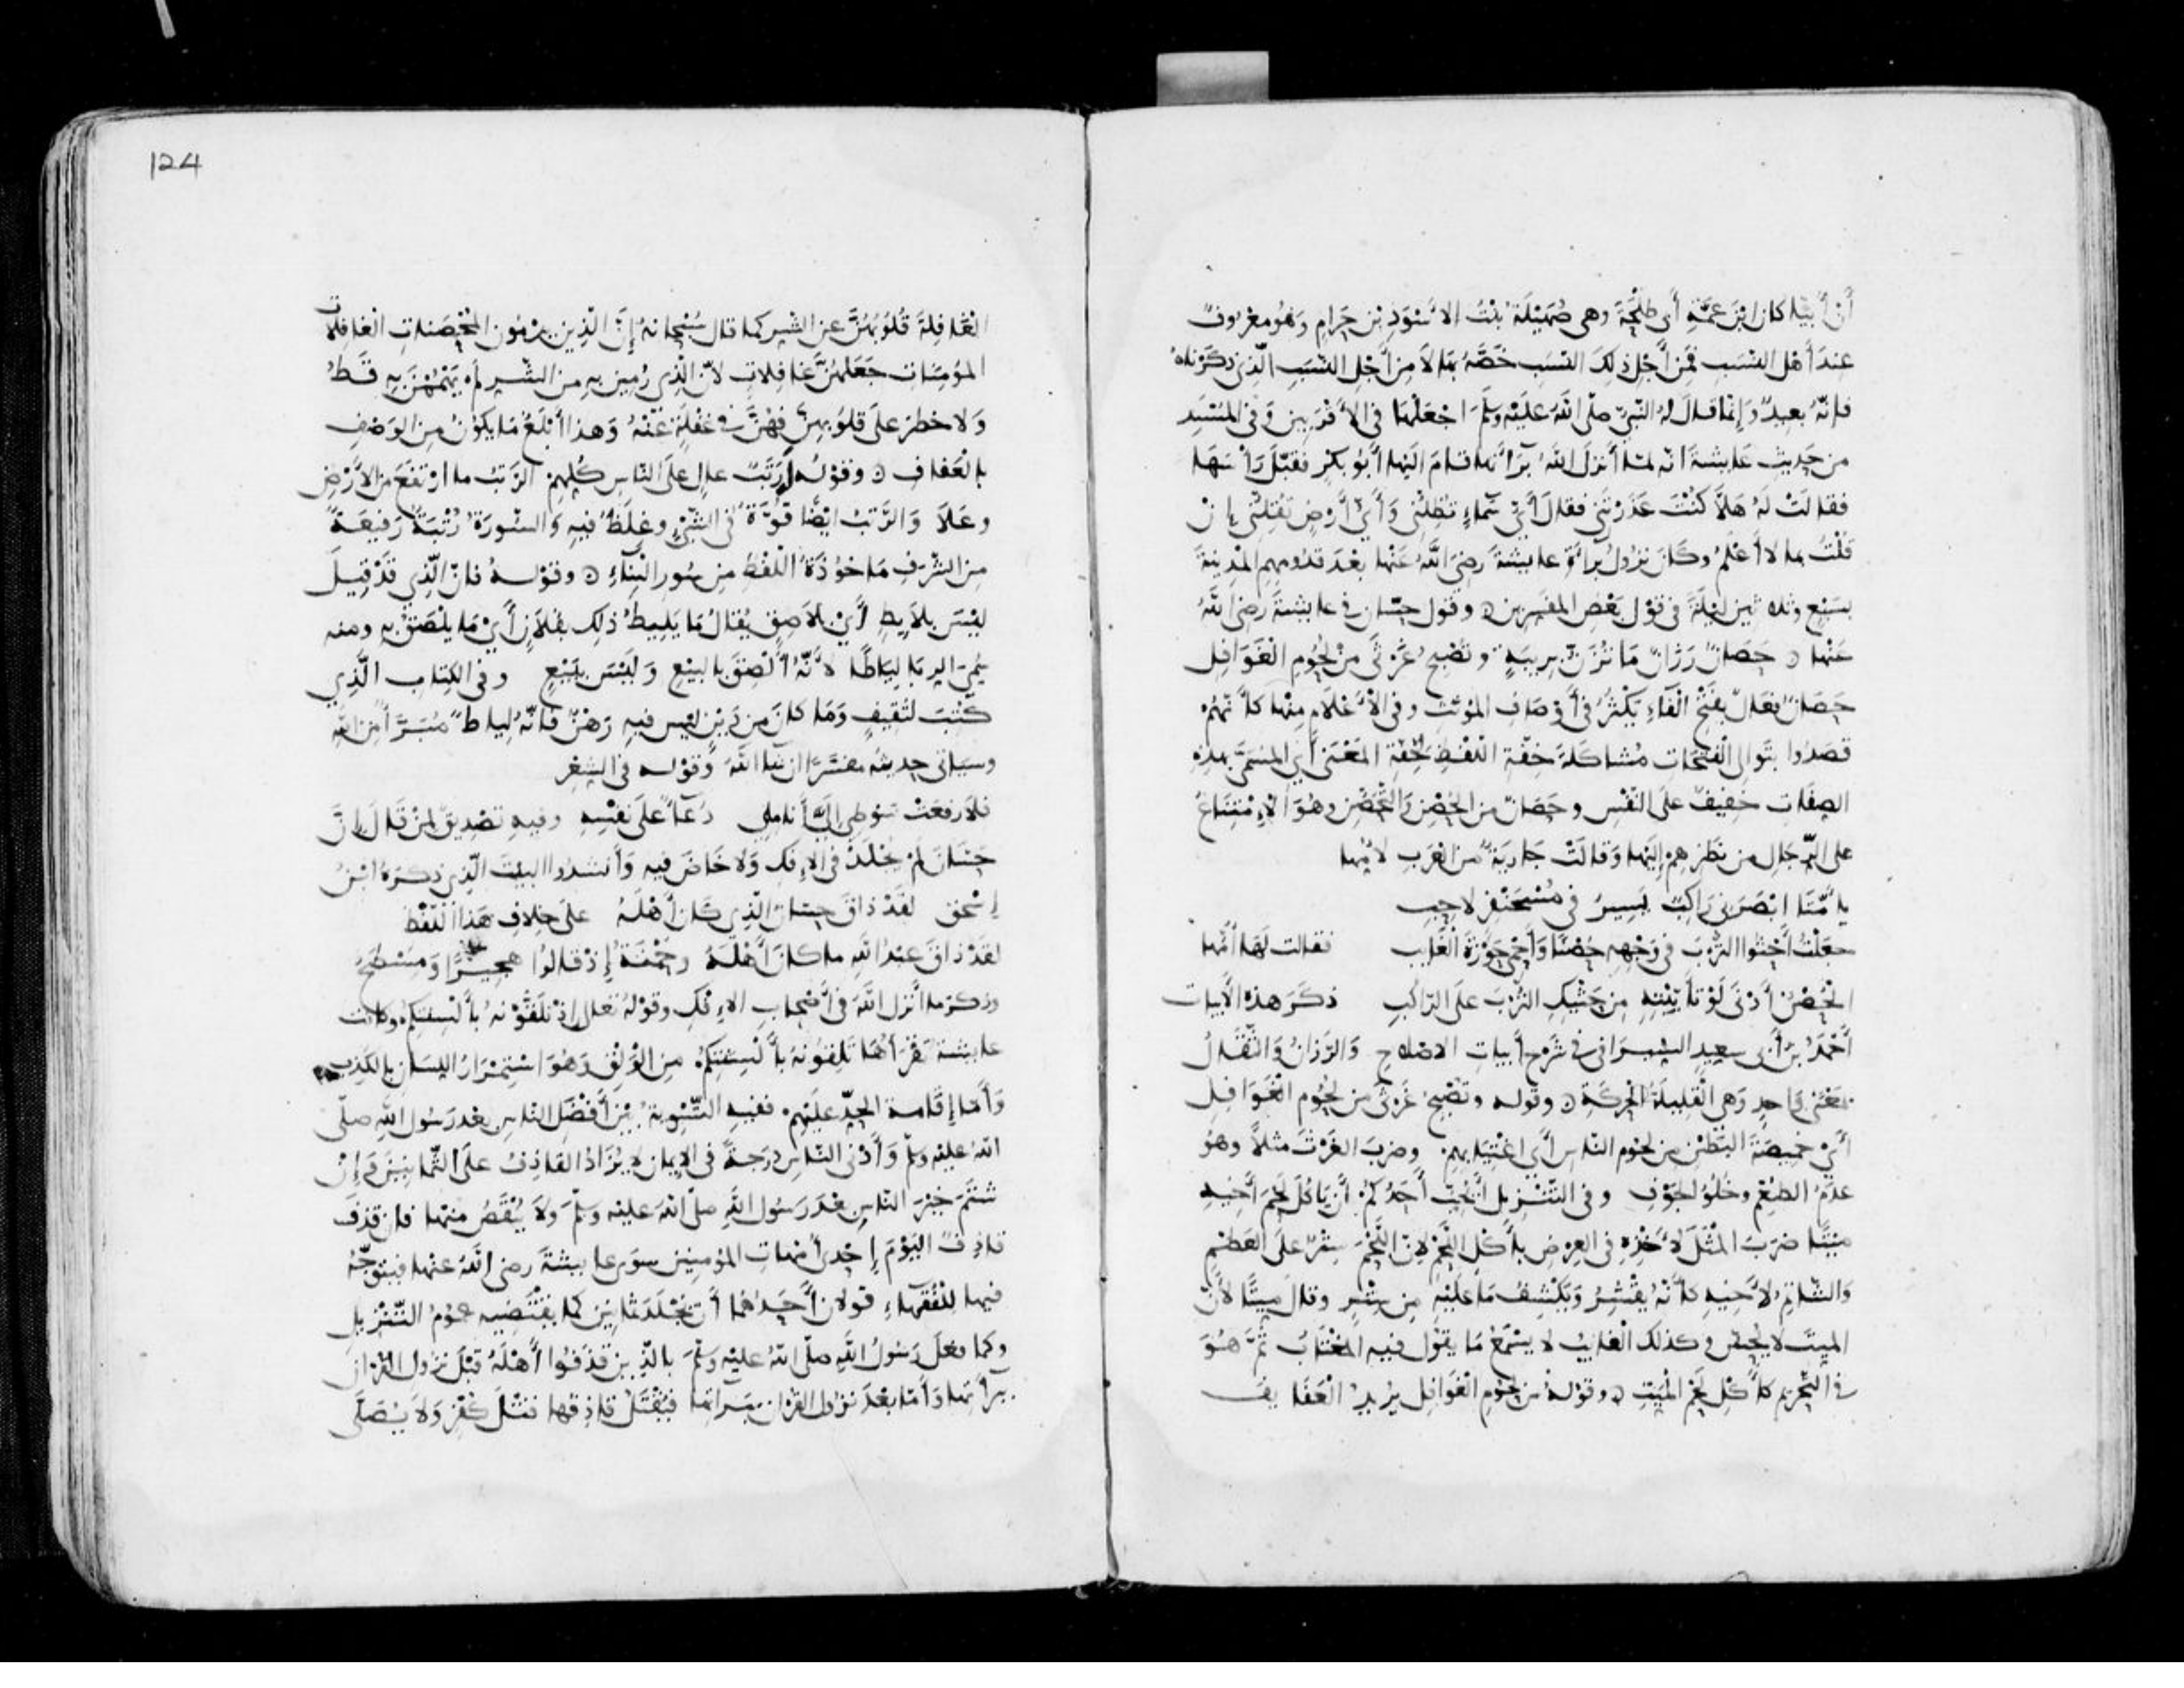 أَنَّ أُبَيًّا كان ابْنَ عَمَّةِ أَبِي طَلْحَةَ وهى صُهَيْلَةُ بِنْتُ الاسْوَدِ بْنِ حَرَامٍ وَهُو مَعْرُوفٌ
عِندَ أَهْلِ النَّسَبِ فَمِنْ أَجْلِ ذلِكَ النَّسَبِ خَصَّهُ بِهَا لاَ مِنْ أَجْلِ النَّسَبِ الَّذِى ذَكَرْنَاهُ
فإنّهُ بعيدٌ وَإنّما قالَ لهُ النَّبِىّ صلّى اللهُ عَلَيْهِ وسَلّمَ اجْعَلْهَا فى الأَقْرَبين وَفى المُسْنَدِ
من حَدِيثِ عَايشةَ انّه لمّا أَنزَلَ اللهُ بَرَأتَها قامَ اليْها أَبُو بكْرٍ فقَبَّلَ رَأْسَهَا
فقالَتْ لَهُ هَلاَّ كُنْتَ عَذَرْتَنِى فقالَ أَىُّ سَماءٍ تُظِلُّنِى وَأَىُّ أَرْضٍ تُقِلُّنِى إنْ
قُلْتُ بما لا أَعْلَمُ وكَانَ نزُولُ بَرَاءَةِ عايشةَ رَضِىَ اللهُ عَنْها بعْدَ قدُومِهِم المَدِينَةَ
بسَبْعٍ وثلاثين لَيْلَةً فى قوْلِ بَعْضِ المفَسِّرِين ۞ وقول حسّان فى عايشةَ رضى اللهُ
عَنْها ۞ حَصَانٌ رَزَانٌ مَا تُزَنُّ بِرِيبَةٍ وتُصْبِحُ غَرْثَى مِنْ لُحُومِ الغَوَافِلِ
حَصَانٌ فعَالٌ بفَتْحِ الْفَاءِ يَكْثُرُ فى أَوْصَافِ المؤنّث وفى الأَعْلامِ مِنْها كأَنَّهُمْ
قصَدُوا بتَوالى الفَتَحاتِ مُشاكَلَةَ خِفّةِ اللفْظِ لِخِفّةِ المَعْنَى أَى المُسَمَّى بهذِهِ
الصِفَاتِ خَفِيفٌ علَى النَّفْسِ وحَصَانٌ من الحُصْنِ وَالتَّحَصُّنِ وهُوَ الاِمْتِنَاعُ
على الرِّجَالِ من نَظَرِهِمْ إِلَيْهَا وَقالَتْ جَارِيَةٌ من العَرَبِ لأُمِّها
يا أُمَّتَا ابْصَرَنِى رَاكِبٌ يَسِيرُ فى مُسْحَنْفِرٍ لاحِبِ
جعَلْتُ أَحْثُوا التُّرْبَ فى وَجْهِهِ حُصْنًا وَأَحْمِى حَوْزَةَ الْغَايب فقالت لَها أُمُّها
الحُصْنُ أَدْنَى لَوْ تَأَيَّيْتِهِ مِنْ حَثْيِكِ التُّرْبَ عَلَى الرّاكِبِ ذكَرَ هذه الأَبيات
أَحْمَدُ بنُ أَبِى سعِيدٍ السيرافى فى شَرْحِ أَبيات الاصلاح وَالرّزانُ وَالثّقَالُ
بمَعْنَى وَاحِدٍ وَهى القلِيلَةُ الحَرَكَةِ ۞ وقوله وتُصْبِحُ غَرْثَى مِن لحُوُمِ الغَوَافِلِ
أَىْ خَمِيصَةَ البَطْنِ مِن لحُومِ النّاسِ أَى اغْتِيَابِهِمْ وضَرَبَ الغَرْثَ مثَلاً وهُو
عدَمُ الطُعْمِ وخُلُوُّ الجَوْفِ وفى التَّنْزِيلِ أَيُحِبُّ أَحَدُكُمْ أَنْ يَأكُلَ لَحْمَ أَخِيهِ
مَيْتًا ضرَبَ المثَلَ لأَخْذِهِ فى العِرْضِ بأَكْلِ اللَّحْمِ لأنّ اللَّحْمَ سِتْرٌ علَى العَظْمِ
وَالشَّاتِمُ لأَخيهِ كأَنّهُ يَقْشِرُ وَيَكْشِفُ مَا علَيْهِ مِن سِتْرٍ وقالَ مَيْتًا لأَنّ
الميّتَ لا يُحِسُّ وكذلك الغايبُ لا يسْمَعُ مَا يقُولُ فيه المُغْتَابُ ثُمَّ هُوَ
فى التّحْرِيمِ كأَكْلِ لَحْمِ المَيّتِ ۞ وقوْلهُ من لحُومِ الغَوَافِلِ يرِيدُ العَفَايفَ
124
الغَافِلَةَ قُلُوبُهُنَّ عن الشّر كما قال سُبْحَانهُ إِنّ الّذِين يرْمُون المُحْصَناتِ الغافِلات
المؤمِنَات جَعَلَهُنَّ غافِلاتٍ لأنّ الّذِى رُمِين بِهِ مِن الشّر لم يَهْمُمْنَ بِهِ قَطُّ
وَلا خطَرَ علَى قلُوبِهِنّ فهُنَّ فى غفْلَةٍ عَنْهُ وَهذا أبْلَغُ مَا يكُونُ مِن الوَصْفِ
بالعَفافِ ۞ وقوْله رُتَبٌ عالٍ علَى النّاسِ كُلّهِمْ الرّتَبُ ما ارْتفَعَ من الأَرْضِ
وعَلاَ وَالرّتَبُ ايْضًا قُوّةٌ فى الشّىْءِ وغِلَظٌ فيهِ وَالسُّورَةُ رُتْبَةٌ رَفِيعَةٌ
مِن الشّرَفِ مَأخُوذَةُ اللَّفْظِ مِن سُورِ البِنَاءِ ۞ وقوْلهُ فإنّ الّذِى قَدْ قِيلَ
ليْسَ بلاَيِطٍ أَىْ بلاَصِقٍ يُقالُ مَا يَلِيطُ ذلِك بفُلاَنٍ أَىْ مَا يلْصَقُ بِهِ ومنه
سُمّىَ الرِبا لِيَاطًا لأَنّهُ أُلْصِقَ بالبيْعِ وَليْسَ ببَيْعٍ وفى الكِتابِ الَّذِى
كُتِبَ لثَقِيفٍ وَمَا كانَ مِن دَيْنٍ ليْس فيهِ رَهْنٌ فإنّهُ لِياطٌ مُبَرّأٌ مِن اللهِ
وسيأتى حديثُه مفسّرًا ان شا اللهُ وَقوْله فى الشِعْرِ
فلا رفَعَتْ سَوْطِى إلىَّ أَنامِلِى دُعَآءٌ علَى نفْسِهِ وفيهِ تصْدِيقٌ لِمنْ قالَ إنّ
حسّانَ لمْ يُجْلَدْ فى الإفكِ وَلا خَاضَ فيه وَأنشدُوا البيْتَ الّذِى ذكرَهُ ابْنُ
إسْحٰق لقَدْ ذاقَ حسّانُ الّذِى كَانَ أَهْلَهُ علَى خِلافِ هَذا اللَّفْظِ
لقَدْ ذاقَ عَبْدُ اللهِ ما كانَ أَهْلَهُ وحَمْنَةُ إِذْ قالُوا هَجِيرًا وَمِسْطَحُ
وذكَرَ ما أَنْزلَ اللهُ فى أَصْحابِ الإفكِ وقوْلهُ تعَلَى إذ تلَقَّوْنهُ بأَلْسِنَتِكُم وكانت
عايشة تقْرَأُهَا تَلِقُونَهُ بأَلْسِنَتِكُمْ مِن الوَلْقِ وَهُوَ اسْتِمْرَارُ اللِسَان بالكَذِبِ
وَأَمّا إقَامة الحَدّ علَيْهِمْ ففيهِ التّسْوِيَةُ بيْن أَفْضَلِ النّاسِ بعْد رَسُولِ اللهِ صلّى
اللهُ علَيْه وسلّم وَأَدْنَى النّاسِ دَرَجةً فى الإيمان لا يُزَادُ القاذِفُ علَى الثّمانينَ وَإِنْ
شتَمَ خيْرَ النّاسِ بعْدَ رَسُولِ اللهِ صلّى اللهُ علَيْه وسلّمَ وَلاَ يُنْقَصُ مِنْها فإن قذَفَ
قاذِفٌ اليَوْمَ إحْدَى أُمّهاتِ المؤمنين سِوَى عايشةَ رضى اللهُ عنْها فيتوَجّهُ
فيها للفُقَهاءِ قوْلانِ أَحَدُهُمَا أَنْ يُجْلَدَ ثمانِينَ كما يقْتَضِيهِ عمُومُ التَّنْزِيلِ
وكما فعَلَ رَسُولُ اللهِ صلّى اللهُ علَيْه وسلّمَ بالّذِين قذَفُوا أَهْلَهُ قبْلَ نزُول القرْآنِ
ببَرَأتِها وَأمّا بعْدَ نزُولِ القرْآن ببَراتِها فيُقْتَلُ قاذِفُها قتْلَ كُفْرٍ وَلاَ يُصَلَّى